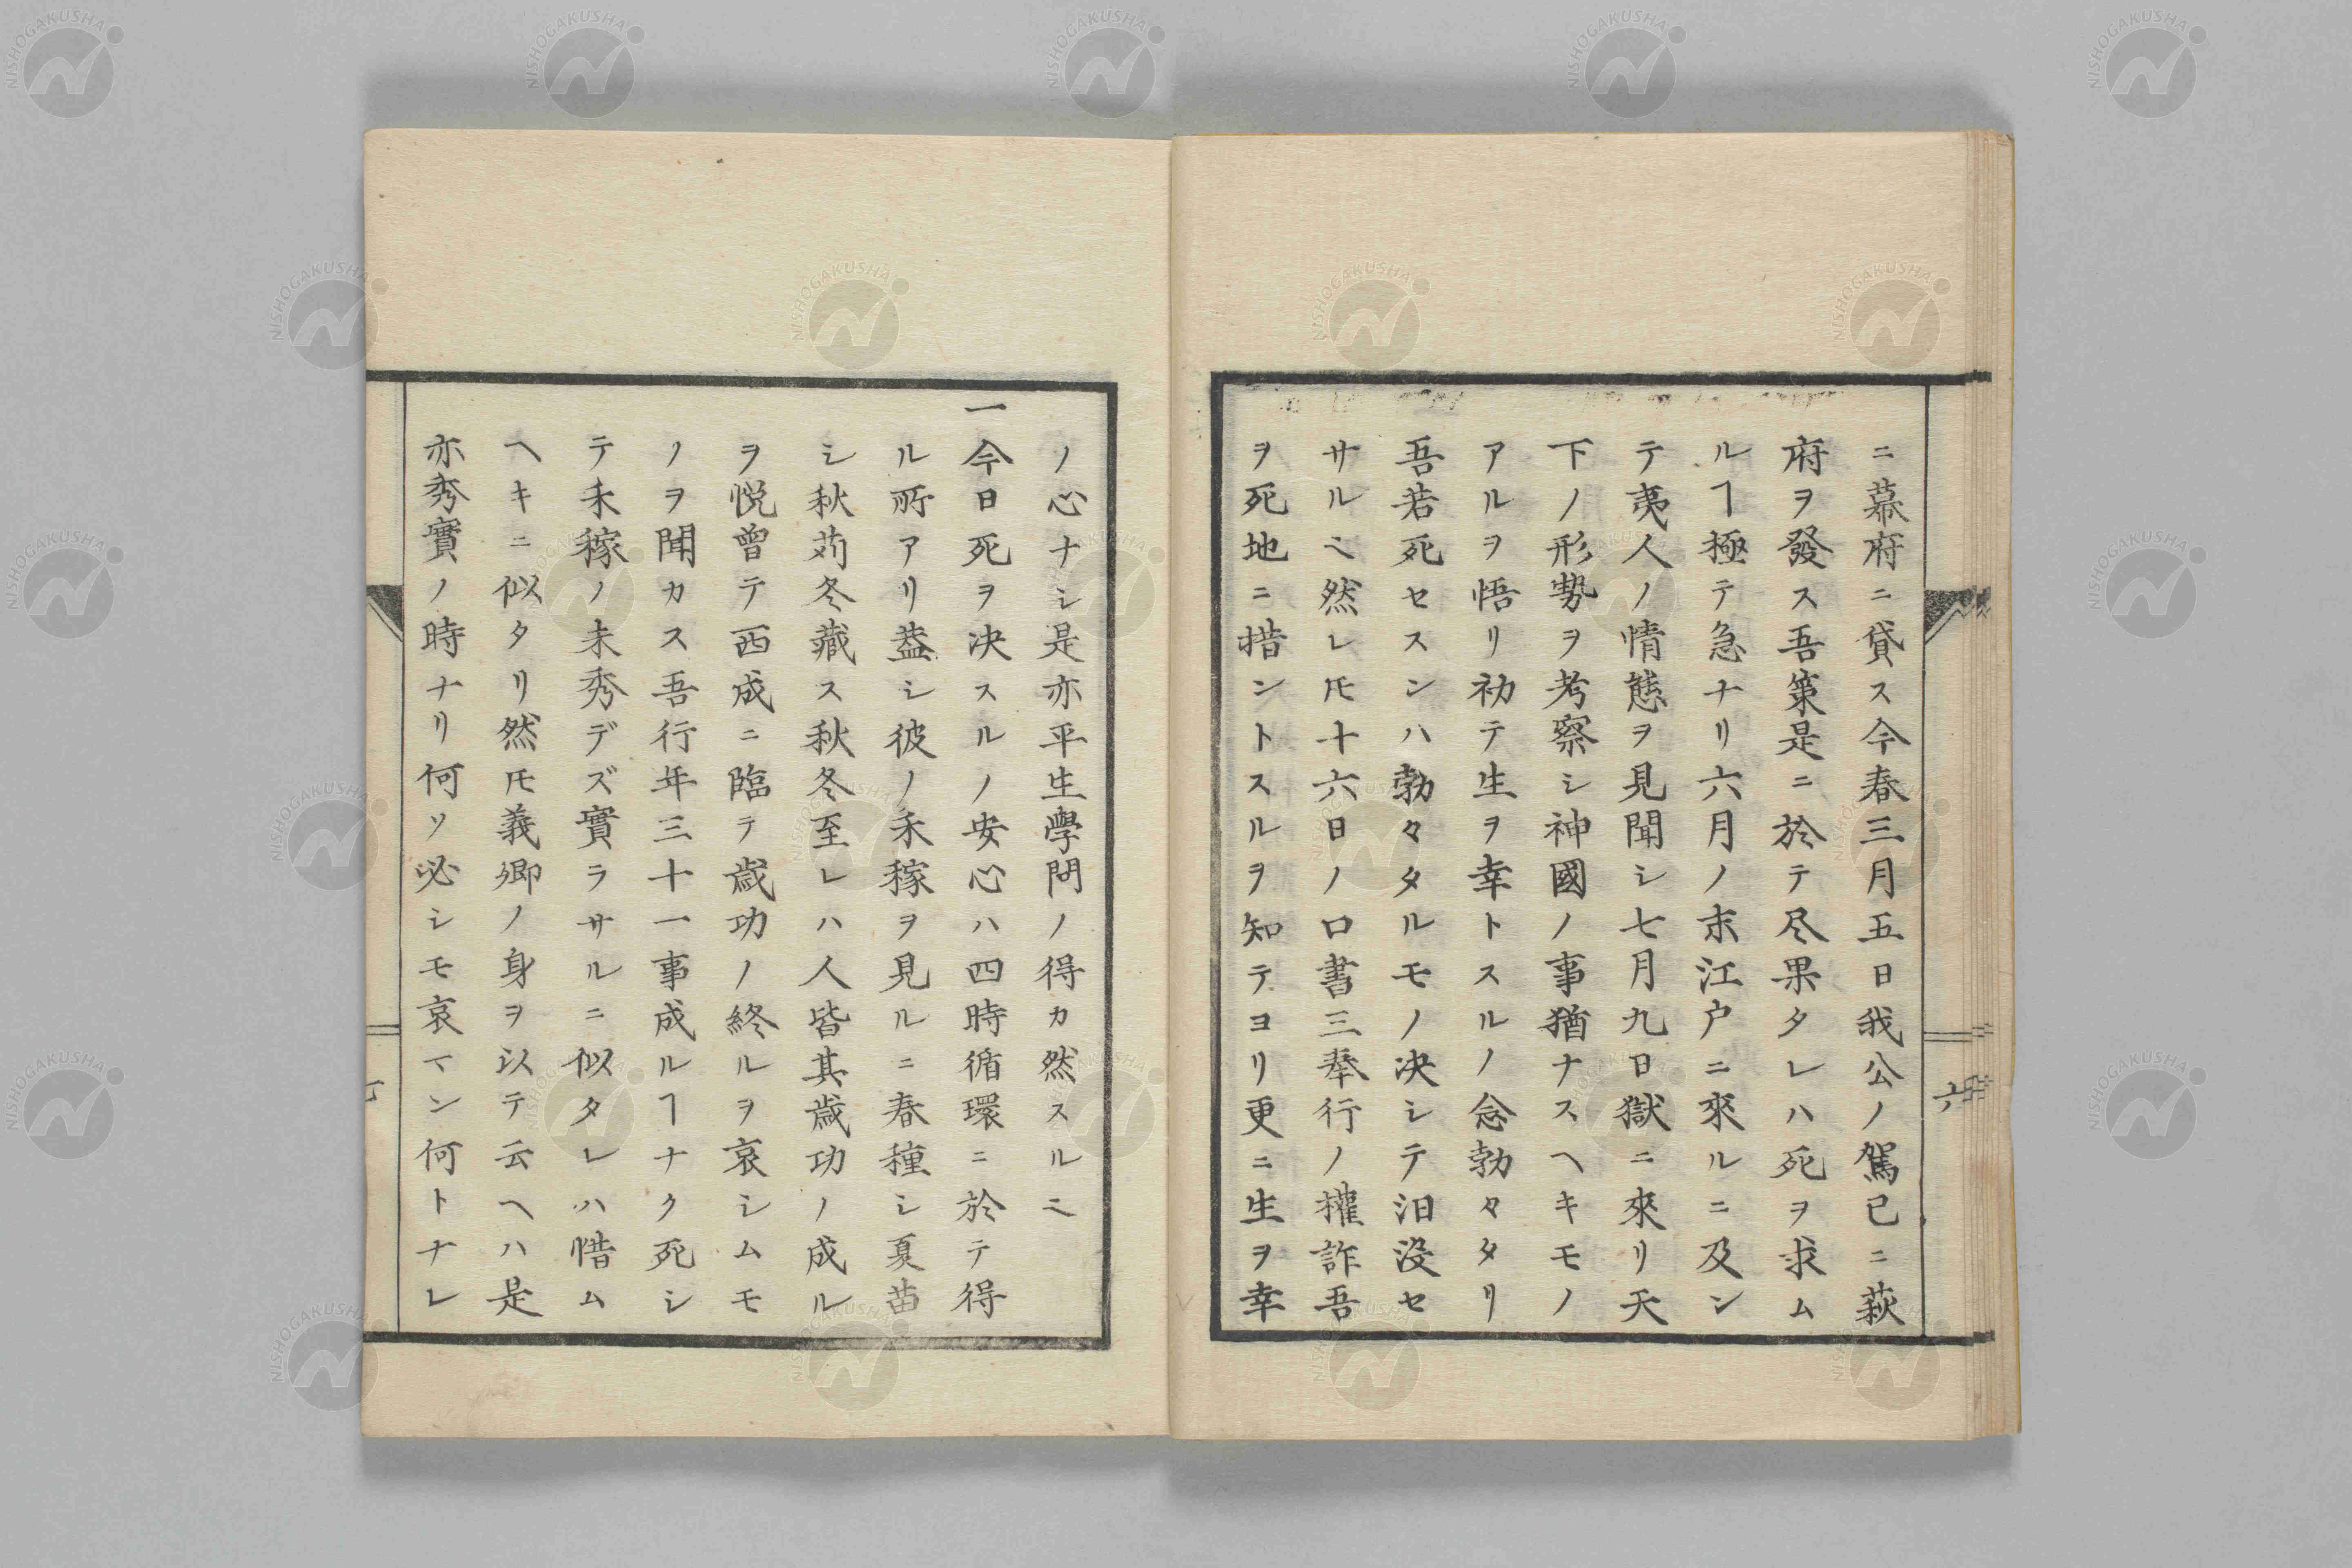 ニ幕府ニ貸ス今春三月五日我公ノ駕已ニ萩
府ヲ發ス吾策是ニ於テ尽果タレハ死ヲ求ム
ルヿ極テ急ナリ六月ノ末江戸ニ來ルニ及ン
テ夷人ノ情態ヲ見聞シ七月九日獄ニ來リ天
下ノ形勢ヲ考察シ神國ノ事猶ナスヘキモノ
アルヲ悟リ初テ生ヲ幸トスルノ念勃々タリ
吾若死セスンハ勃々タルモノ决シテ汨没セ
サルヘ然レ𪜈十六日ノ口書三奉行ノ權詐吾
ヲ死地ニ措ントスルヲ知テヨリ更ニ生ヲ幸
六
ノ心ナシ是亦平生學問ノ得カ然スルニ
一今日死ヲ决スルノ安心ハ四時循環ニ於テ得
ル所アリ葢シ彼ノ禾稼ヲ見ルニ春種シ夏苗
シ秋苅冬藏ス秋冬至レハ人皆其歳功ノ成ル
ヲ悦曽テ西成ニ臨テ歳功ノ終ルヲ哀シムモ
ノヲ聞カス吾行年三十一事成ルヿナク死シ
テ禾稼ノ未秀デズ實ラサルニ似タレハ惜ム
ヘキニ似タリ然𪜈義卿ノ身ヲ以テ云ヘハ是
亦秀實ノ時ナリ何ソ必シモ哀マン何トナレ
NISHOGAKUSHA